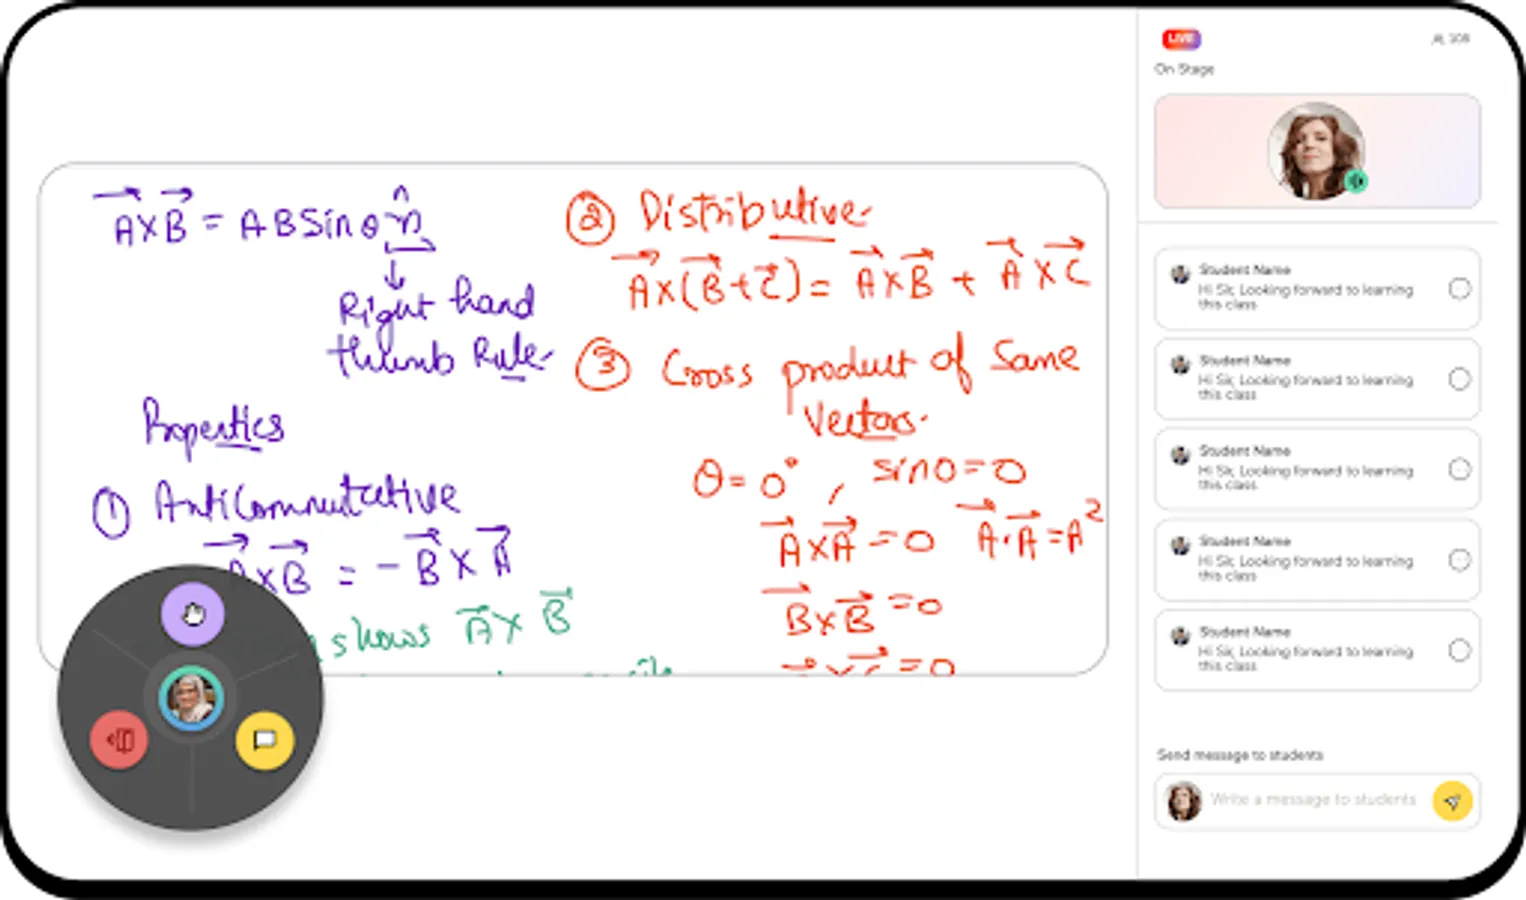 A⃗×B⃗ = ABSinθ n̂
↓
Right hand
thumb Rule
Properties
① Anticommutative
A⃗×B⃗ = -B⃗×A⃗
shows A⃗×B⃗
② Distributive
A⃗×(B⃗+C⃗) = A⃗×B⃗ + A⃗×C⃗
③ Cross product of Same
Vectors.
θ=0°, sin0=0
A⃗×A⃗=0 A⃗.A⃗=A²
B⃗×B⃗=0
LIVE
108
On Stage
Student Name
Hi Sir, Looking forward to learning
this class
Student Name
Hi Sir, Looking forward to learning
this class
Student Name
Hi Sir, Looking forward to learning
this class
Student Name
Hi Sir, Looking forward to learning
this class
Student Name
Hi Sir, Looking forward to learning
this class
Send message to students
Write a message to students